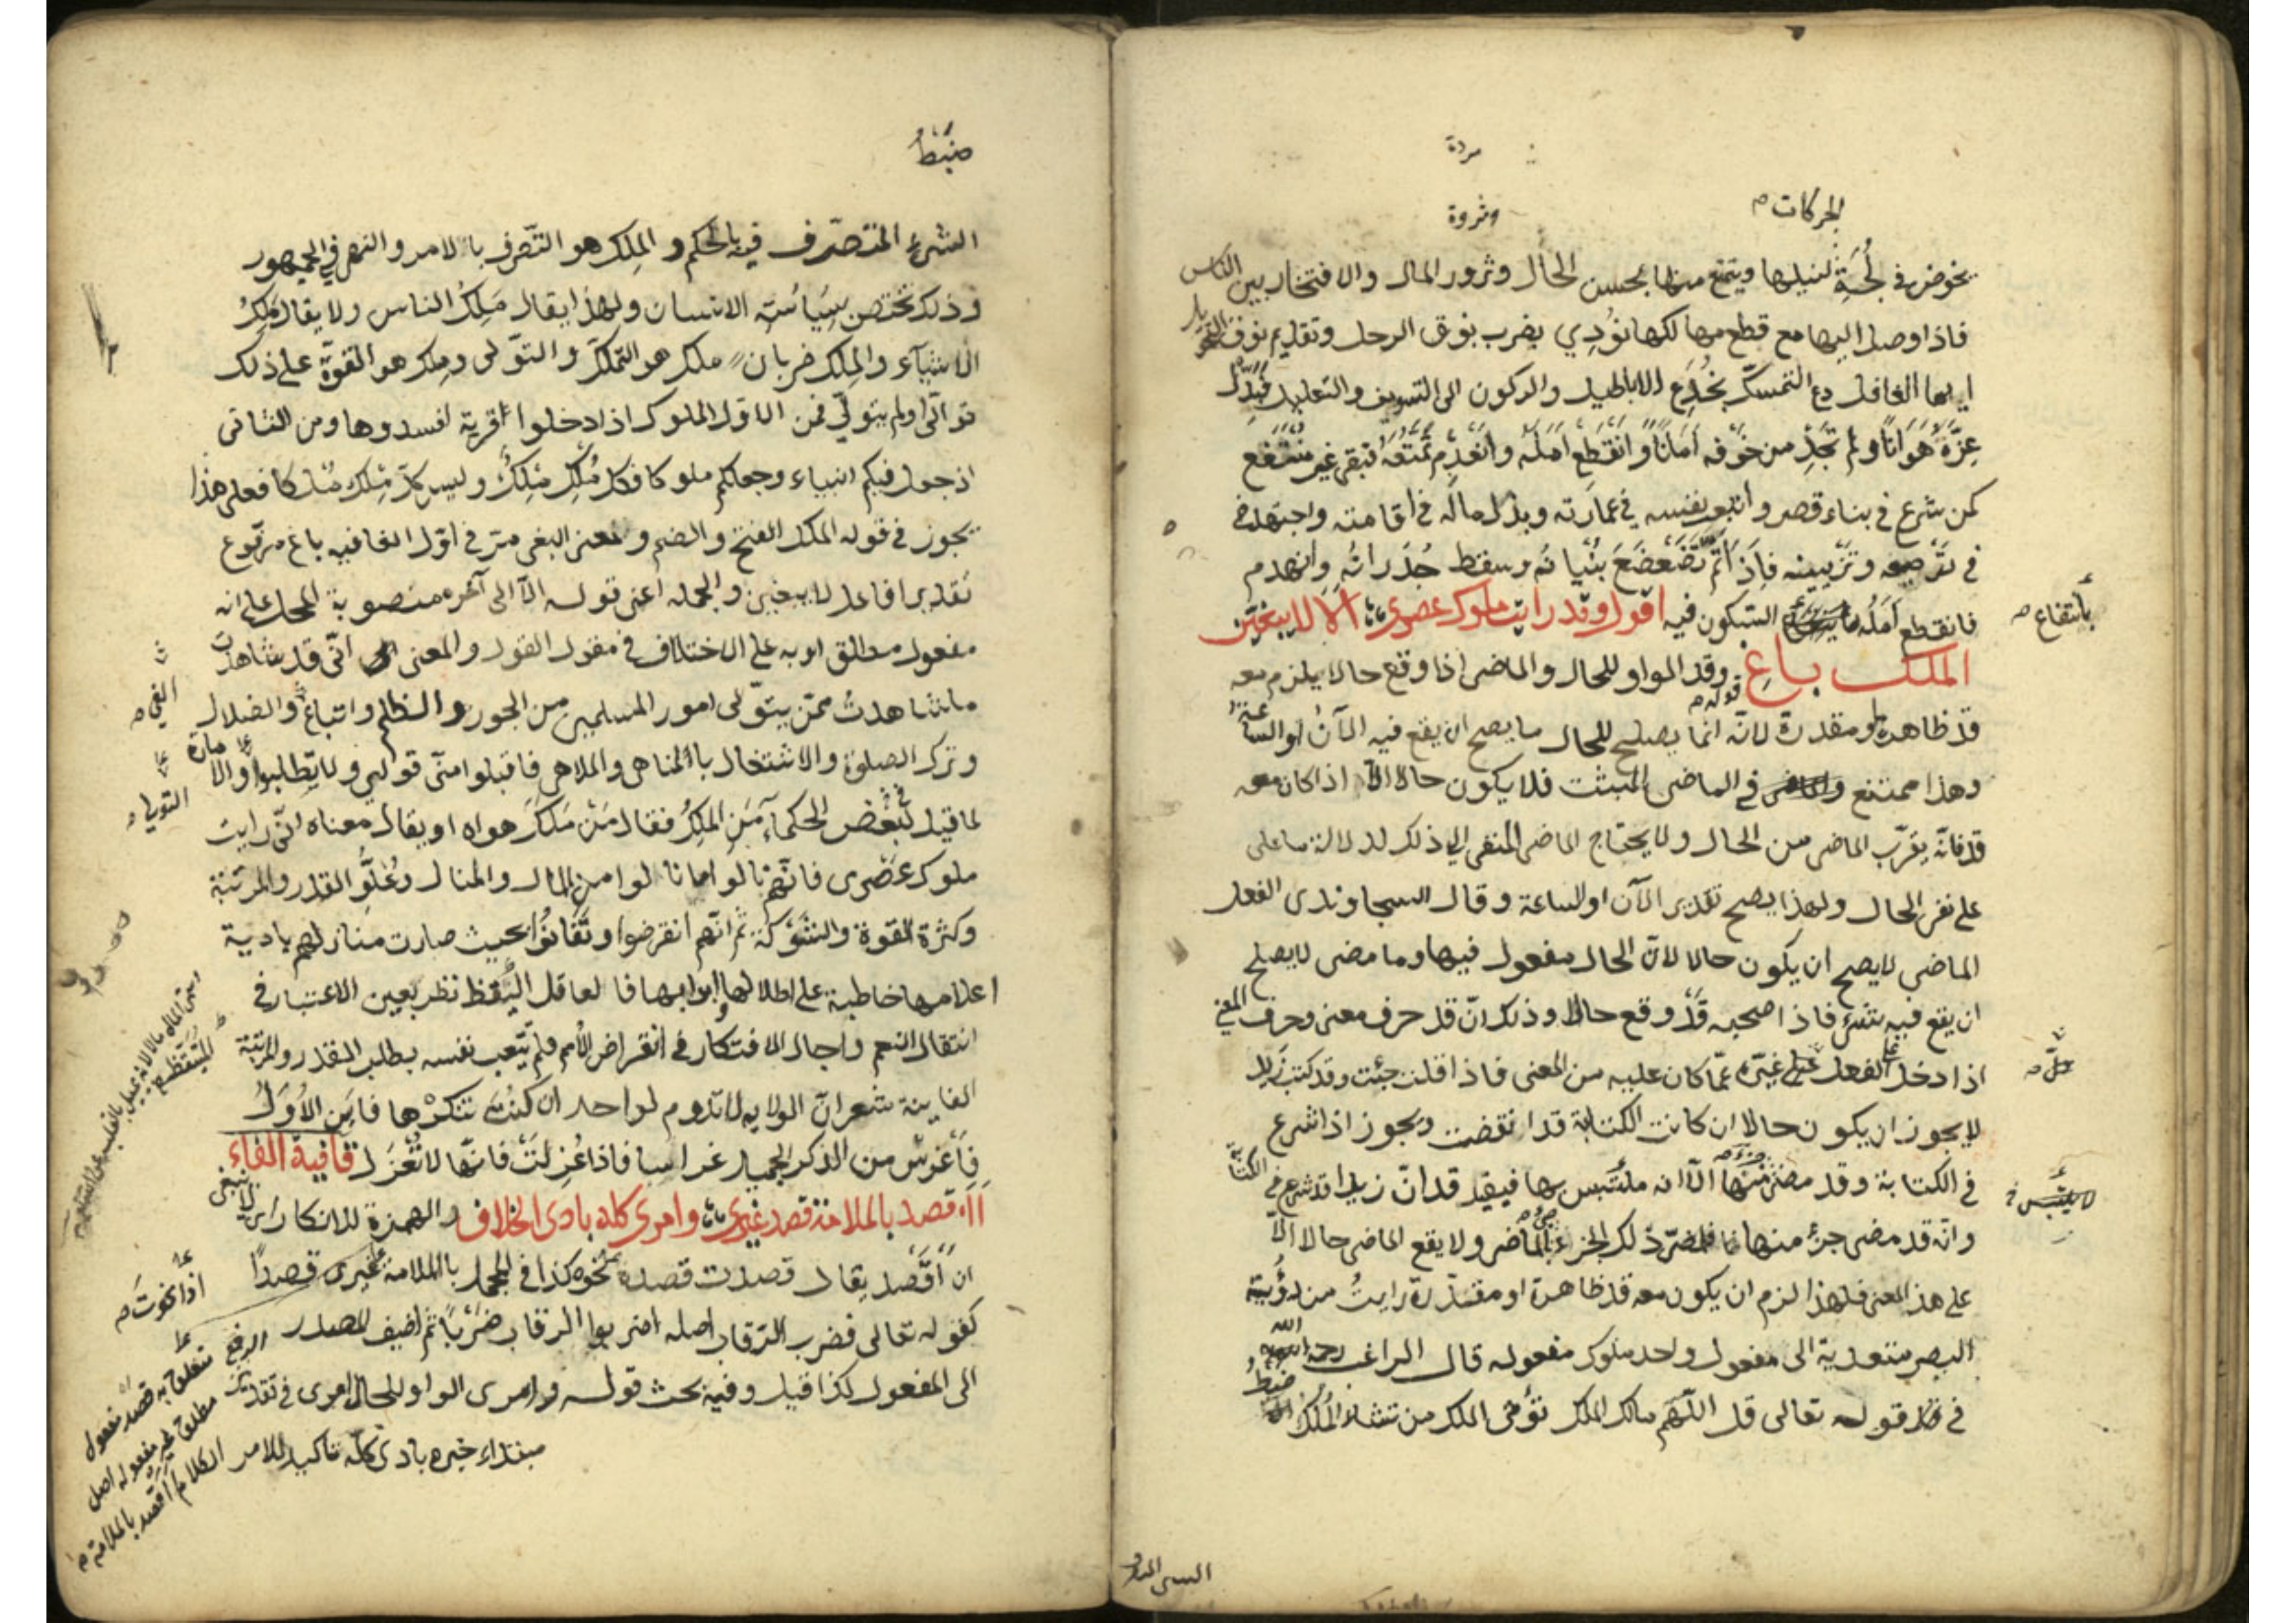 الحركات
وثروة
يخوض في لجة لنيلها ويتمتع منها بحسن الحال وثرور المال والافتخار بين الناس
فاذا وصل اليها مع قطع مهالكها نؤدي بضرب بوق الرحل وتقديم
ايها الغافل دع التمسك بخدع الاباطيل والركون الى التسويف والتعليل
عزه هوانا ولم تجد من خوفه امانا وانقطع امله وانعدم تمتعه فبقى غير منتفع
كمن شرع في بناء قصر واتعب نفسه في عمارته وبذل ماله في اقامته واجتهد في
في ترصيعه وتزيينه فاذا تم تضعضع بنيانه وسقط جدرانه وانهدم
فانقطع امله السكون فيه اقول وقد رايت ملوك عصرى الا لا يبغين
بانتفاع
الملك باغ وقد الواو للحال والماضى اذا وقع حالا يلزم معه
قد ظاهرة او مقدرة لانه انما يصلح للحال ما يصح ان يقع فيه الآن او الساعة
قوله
وهذا ممتنع في الماضى المبثت فلا يكون حالا الا اذا كان معه
قد فانه يقرب الماضى من الحال ولا يحتاج الماضى المنفى الى ذلك لدلالة ما على
على نفى الحال ولهذا يصح تقدير الآن او الساعة وقال السجاوندى الفعل
الماضى لا يصح ان يكون حالا لان الحال مفعول فيها وما مضى لا يصلح
ان يقع فيه شئ فاذا صحبه قد وقع حالا وذلك ان قد حرف معنى وحرف المعنى
اذا دخل الفعل غيره عما كان عليه من المعنى فاذا قلت جئت وقد كتب زيد
لا يجوز ان يكون حالا ان كانت الكتابة قد انقضت ويجوز اذا شرع
في الكتابة وقد مضى منها الا انه ملتبس بها فيقد قد ان زيدا قد شرع في الكتابة
وانه قد مضى جزء منها ذلك الجزء بالماضى ولا يقع الماضى حالا الا
على هذا المعنى فلهذا لزم ان يكون معه قد ظاهرة او مقدرة رايت من رؤية
البصر متعدية الى مفعول واحد ملوك مفعوله قال الراغب رحمه الله
في قوله تعالى قل اللهم مالك الملك تؤتى الملك من تشاء الملك ضبط
ضبط
الشئ المتصرف فيه بالحكم والملك هو التصرف بالامر والنهى في الجمهور
وذلك تختص بسياسة الانسان ولهذا يقال ملك الناس ولا يقال ملك
الاشياء والملك ضربان ملك هو التملك والتولى وملك هو القوة على ذلك
تولى او لم يتولى فمن الاول الملوك اذا دخلوا قرية افسدوها ومن الثانى
اذ جعل فيكم انبياء وجعلكم ملوكا فكل ملك ملك وليس كل ملك ملكا فعلى هذا
يجوز في قوله الملك الفتح والضم ومعنى البغى مر في اول القافيه باغ مرفوع
تقديرا فاعل لا يبغين والجمله اعنى قوله الا الى آخره منصوبة المحل على انه
مفعول مطلق او به على الاختلاف في مقول القول والمعنى انى قد شاهدت
ما شاهدت ممن يتولى امور المسلمين من الجور والظلم واتباع والضلال
الغى
وترك الصلوة والاشتغال بالمناهى والملاهى فاقبلوا منى قولى ولا تطلبوا والامارة
التولى
لما قيل لبعض الحكماء من الملك فقال من ملك هواه او يقال معناه انى رايت
ملوك عصرى فانهم نالوا ما نالوا من المال والمنال وعلو القدر والمرتبة
وكثرة القوة والشوكة ثم انهم انقرضوا وتفانوا بحيث صارت منازلهم بادية
اعلامها خاطبة على اطلالها ابوابها فالعاقل اليقظ نظر بعين الاعتبار في
انتقال النعم واجال الافتكار في انقراض الامم ولم يتعب نفسه بطلب القدر والمرتبة
الفاينة شعر ان الولايه لا تدوم لواحد ان كنت تنكرها فاين الاول
فاغرس من الذكر الجميل غراسا فاذا عزلت فانها لا تعزل قافية الفاء
أاقصد بالملامة قصد غيرى وامرى كله بادى الخلاف والهمزة للانكار اى لا ينبغى
ان اقصد يقال قصدت قصده نحوه كذا في المجمل بالملامة غيرى قصدا
اذا نحوت
كقوله تعالى فضرب الرقاب اصله اضربوا الرقاب ضربا ثم اضيف المصدر
الى المفعول كذا قيل وفيه بحث قوله وامرى الواو للحال امرى في تقدير الرفع
مبتداء خبره بادى كله تاكيد للامر
متعلق به قصد مفعول
مطلق غير مفعوله اصل
الكلام أاقصد بالملامة